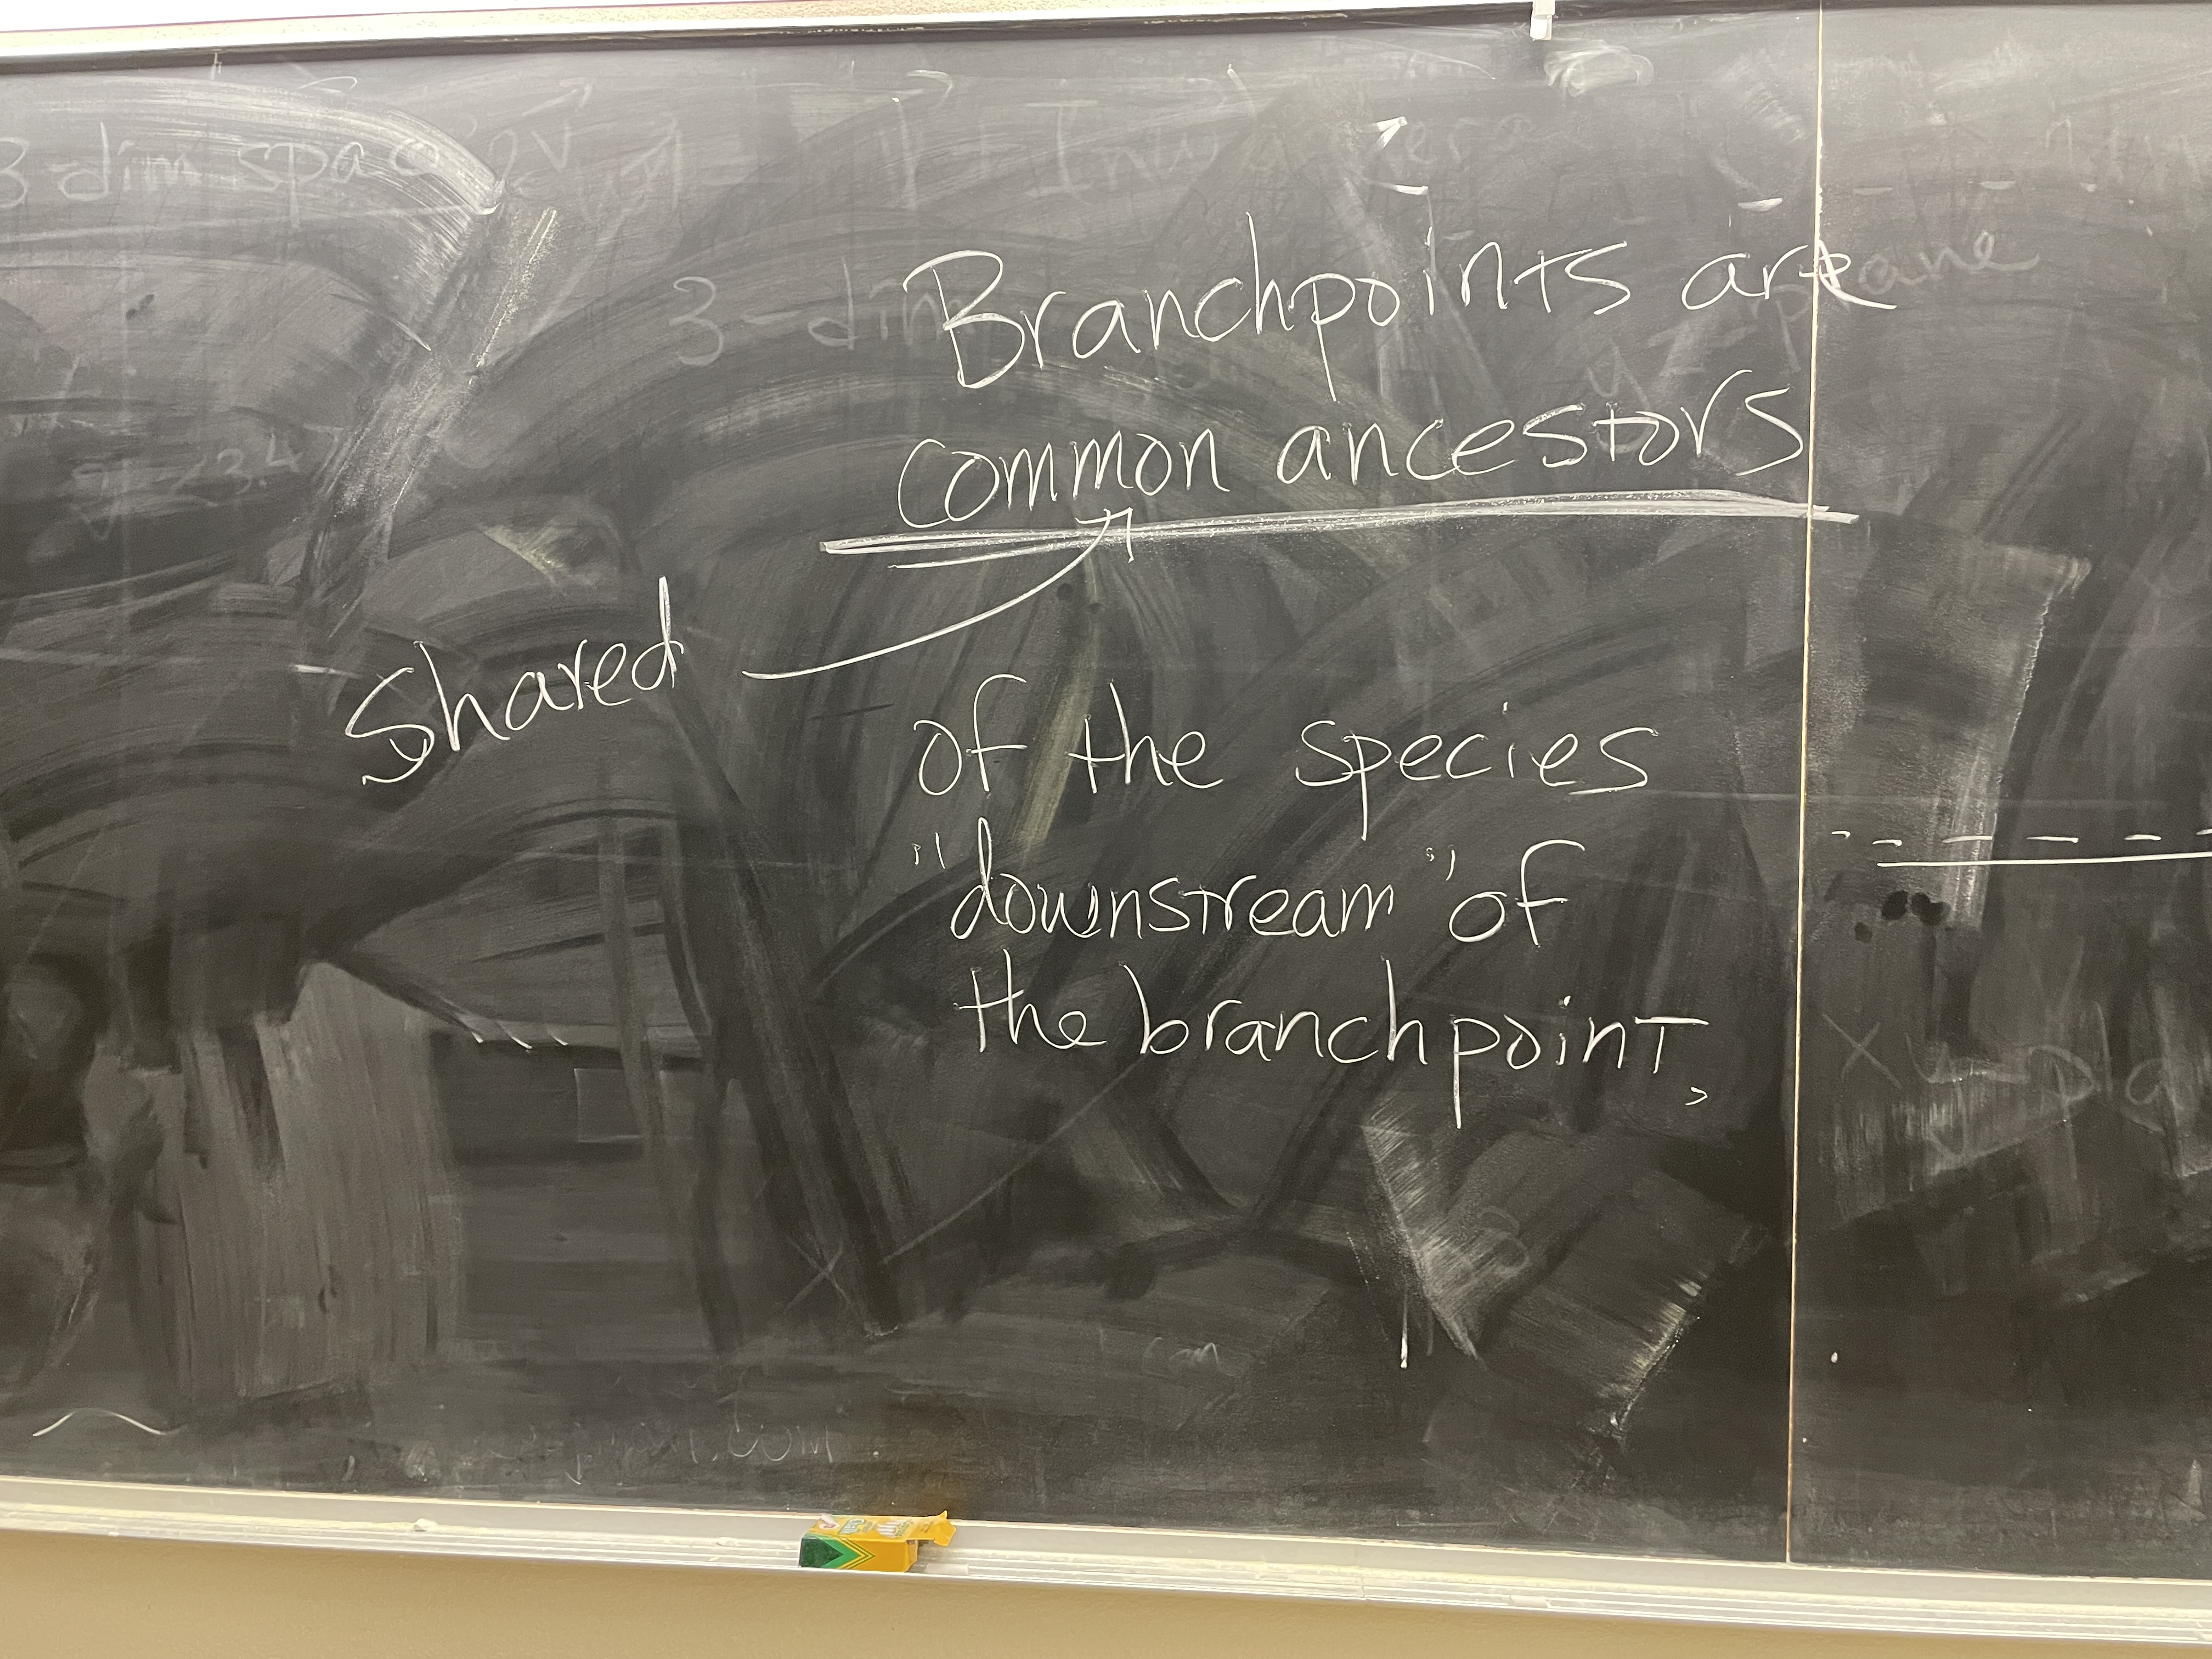 3-dim space
3-dim
Branchpoints are
common ancestors
Shared
of the species
"downstream" of
the branchpoint.